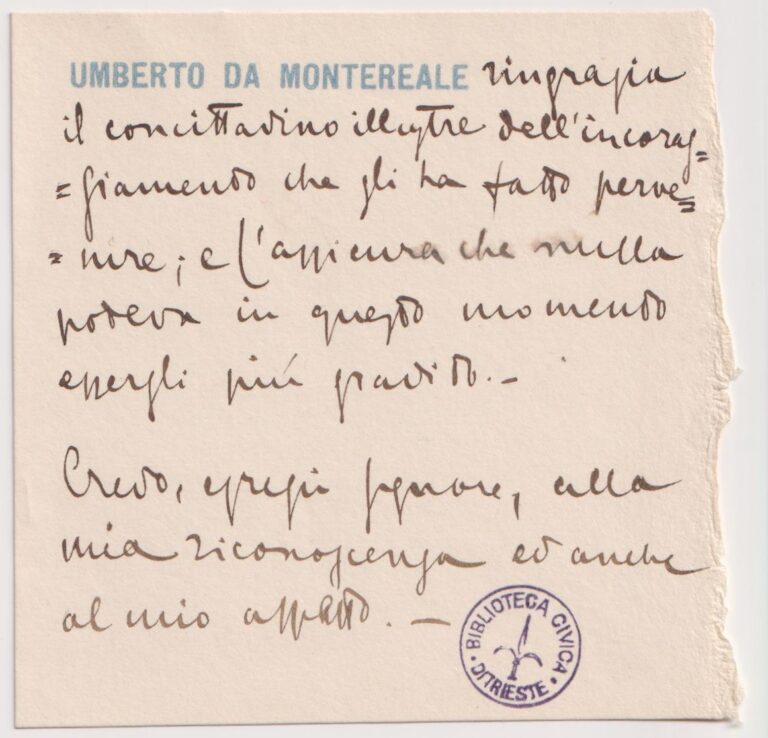 UMBERTO DA MONTEREALE ringrazia
il concittadino illustre dell'incorag=
=giamento che gli ha fatto perve=
=nire; e l'assicura che nulla
poteva in questo momento
essergli più gradito.—
Credo, egregio signore, alla
mia riconoscenza ed anche
al mio affetto. —
BIBLIOTECA CIVICA
DI TRIESTE